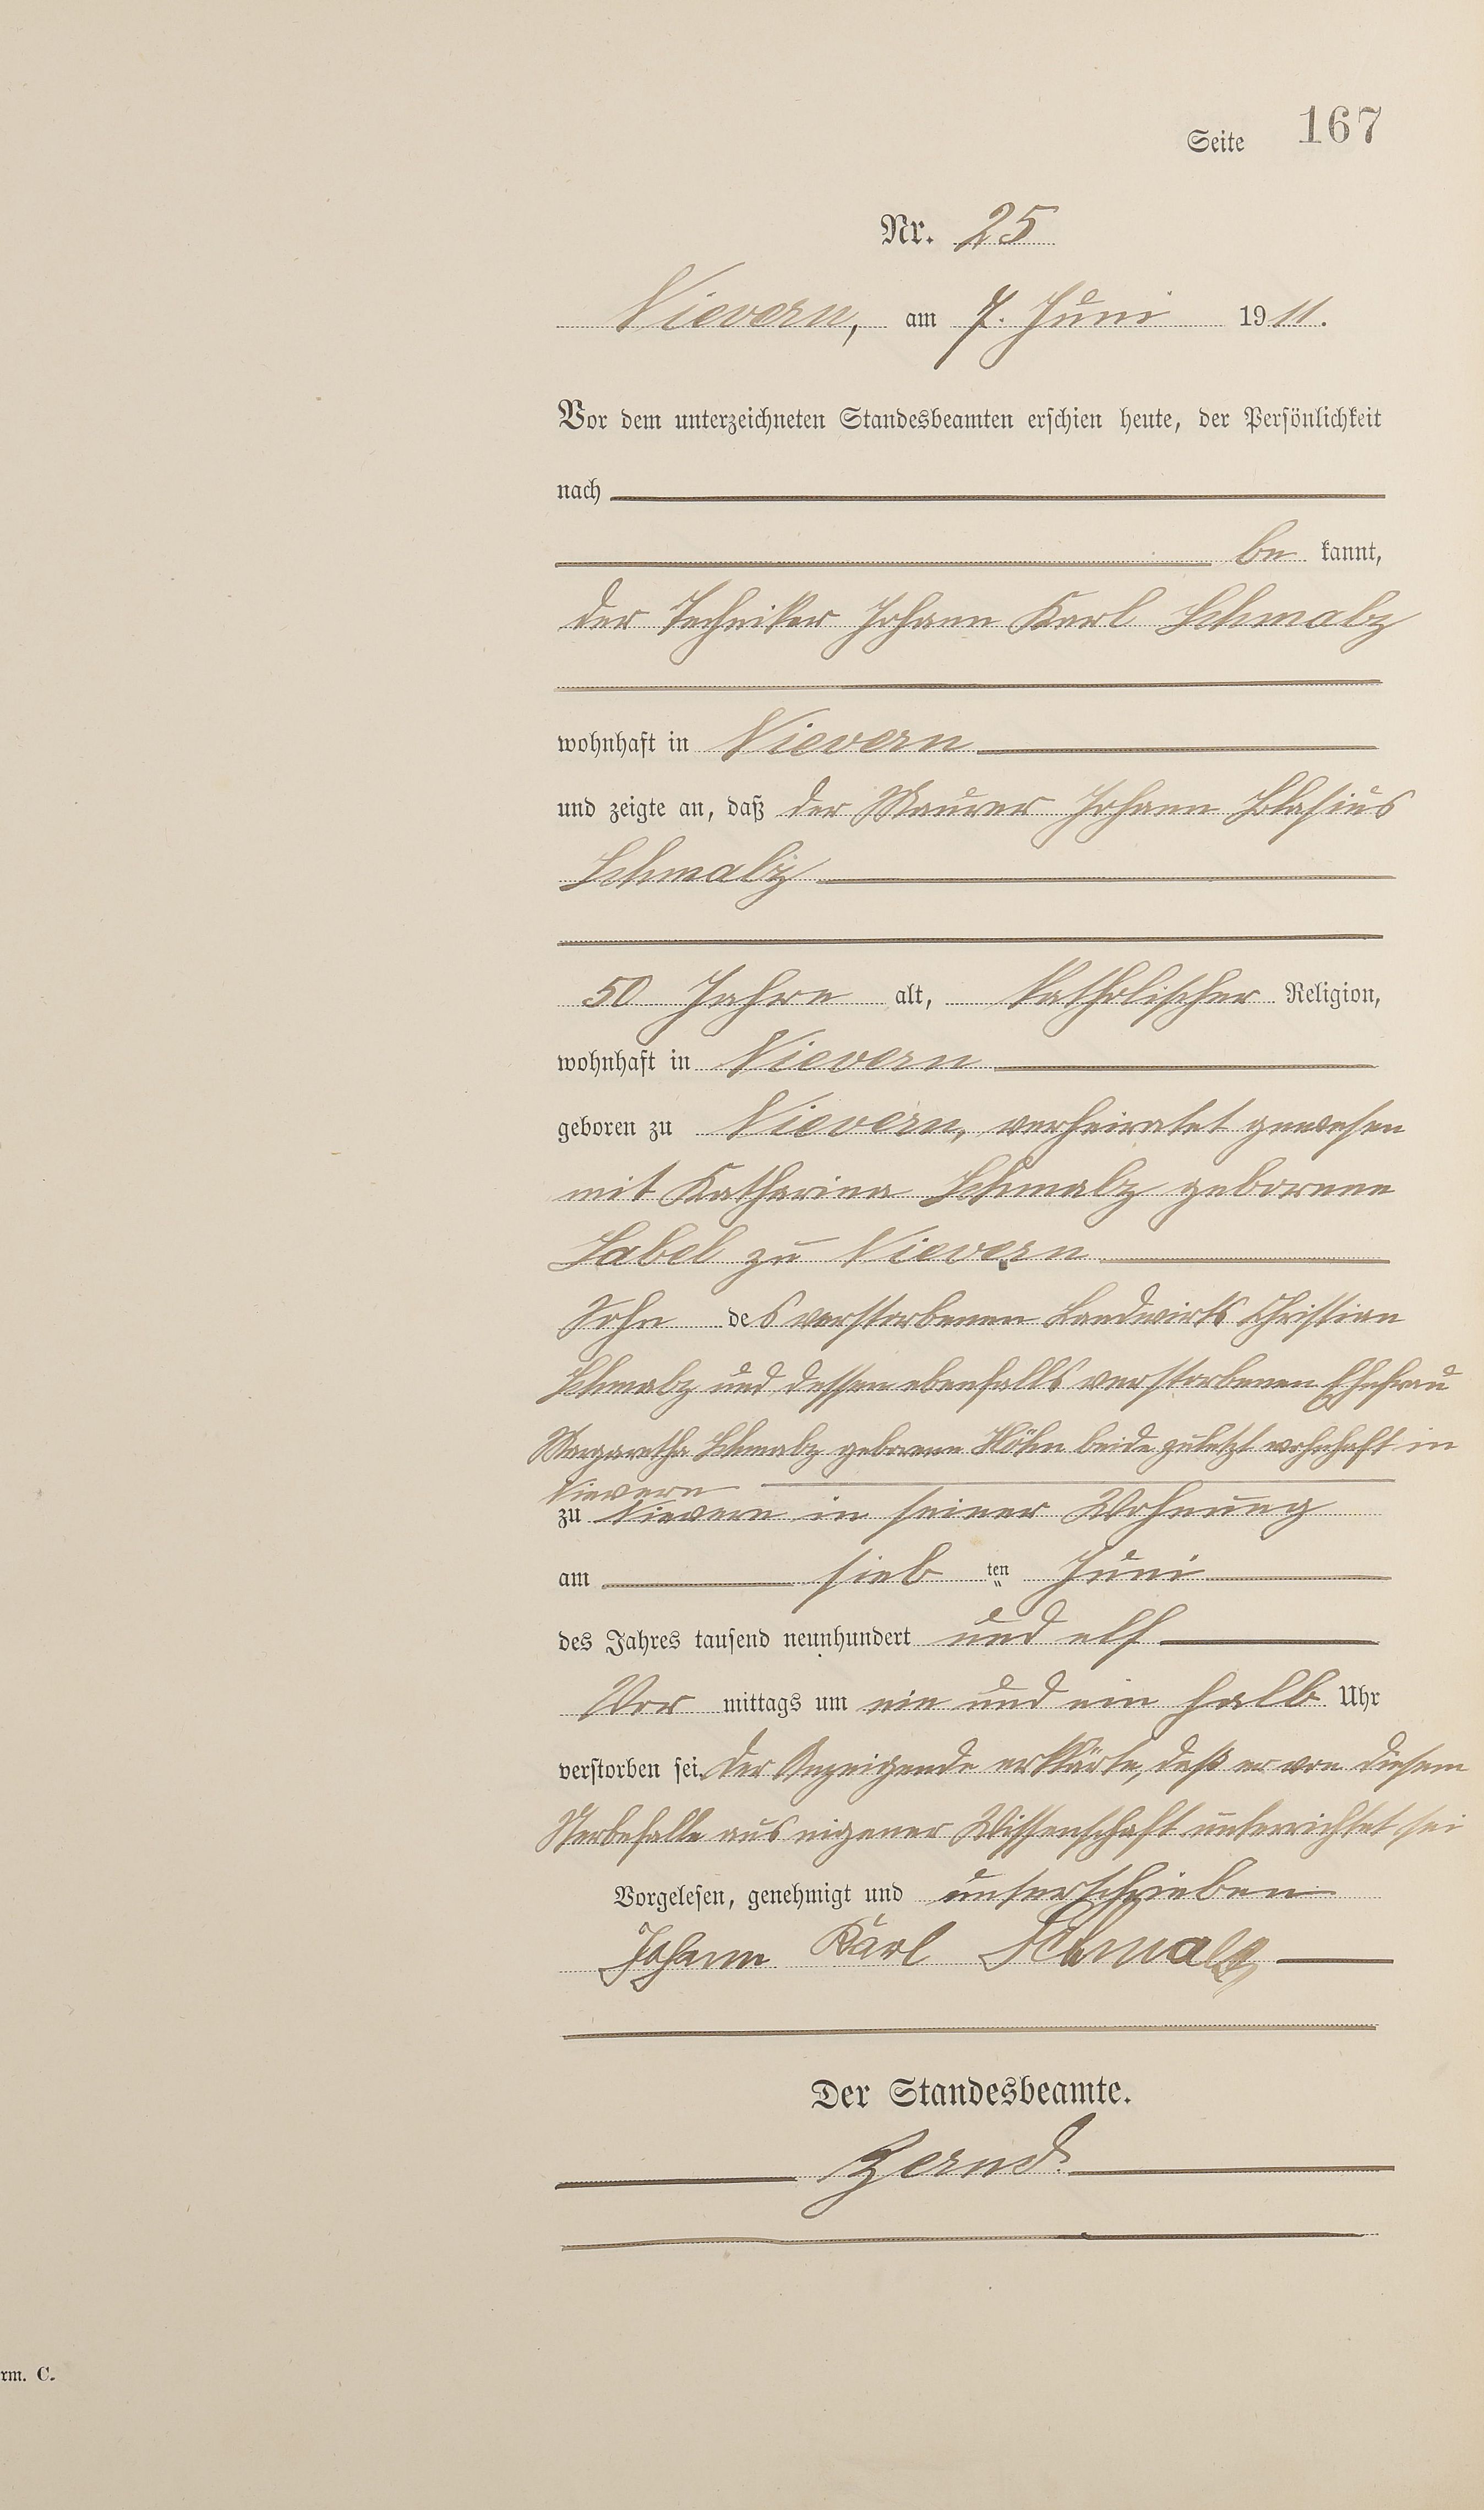 Seite 167
Nr. 25
Nievern, am 7. Juni 1911.
Vor dem unterzeichneten Standesbeamten erschien heute, der Persönlichkeit
nach
be kannt,
der Techniker Johann Karl Schmalz
wohnhaft in Nievern
und zeigte an, daß der Maurer Johann Blasius
Schmalz
50 Jahre alt, katholischer Religion,
wohnhaft in Nievern
geboren zu Nievern, verheiratet gewesen
mit Katharina Schmalz geborenen
Sabel zu Nievern
Sohn des verstorbenen Landwirts Christian
Schmalz und dessen ebenfalls verstorbenen Ehefrau
Margaretha Schmalz geborene Höhn beide zuletzt wohnhaft in
Nievern
zu Nievern in seiner Wohnung
am sieb ten Juni
des Jahres tausend neunhundert und elf
Vor mittags um ein und ein halb Uhr
verstorben sei. Der Anzeigende erklärte, daß er von diesem
Sterbefalle aus eigener Wissenschaft unterrichtet sei
Vorgelesen, genehmigt und unterschrieben
Johann Karl Schmalz
Der Standesbeamte.
rm. C.